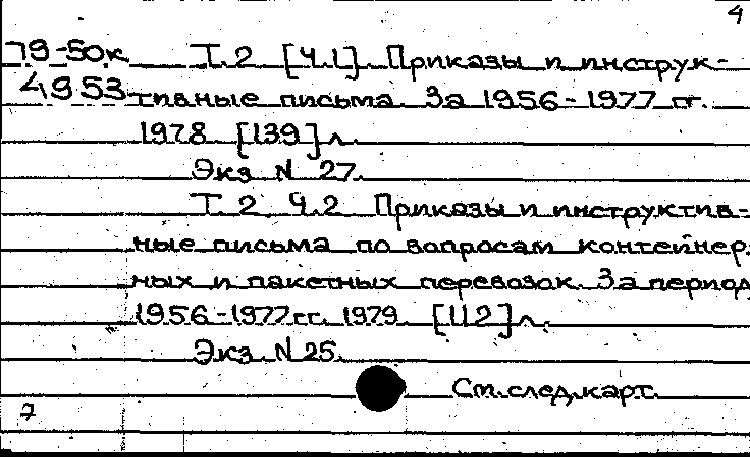 4
79-50к Т.2 [Ч.1]. Приказы и инструк-
4953 тивные письма. За 1956-1977 гг.
1978 [139]л.
Экз. N 27.
Т. 2 Ч.2 Приказы и инструктив-
ные письма по вопросам контейнер-
ных и пакетных перевозок. За период
1956-1977гг. 1979. [112]л.
Экз. N 25.
См.след.карт.
7